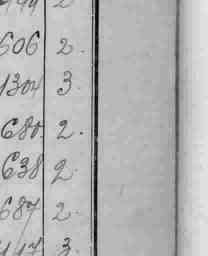 506 2.
1304 3.
680 2.
638 2.
687 2.
447 3.